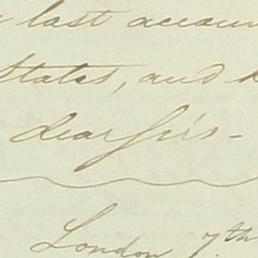 last accoun
States, and
dear Sirs -
London 7th